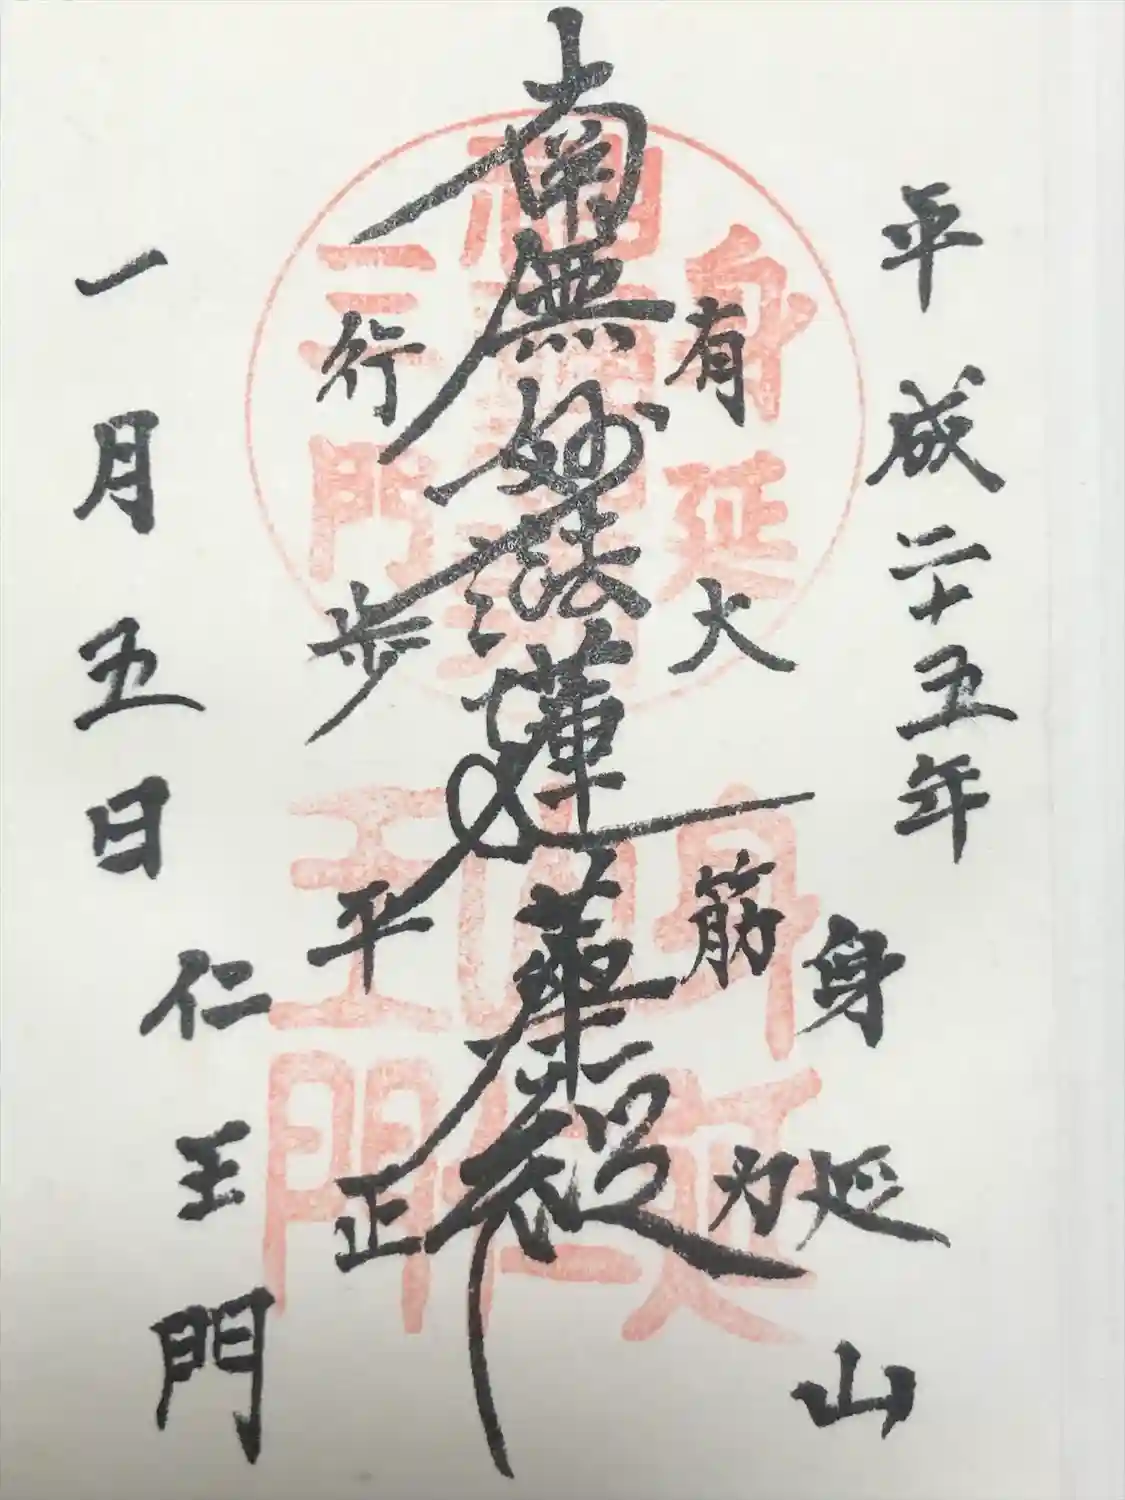 平成二十五年
身延山
有大筋力
南無妙法蓮華経
行歩平正
一月五日
仁王門
身延
三門
身延山
仁王門